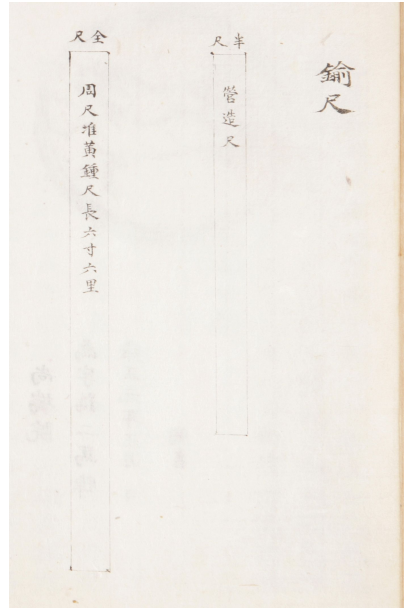 鍮尺
半尺
營造尺
全尺
周尺准黃鍾尺長六寸六里